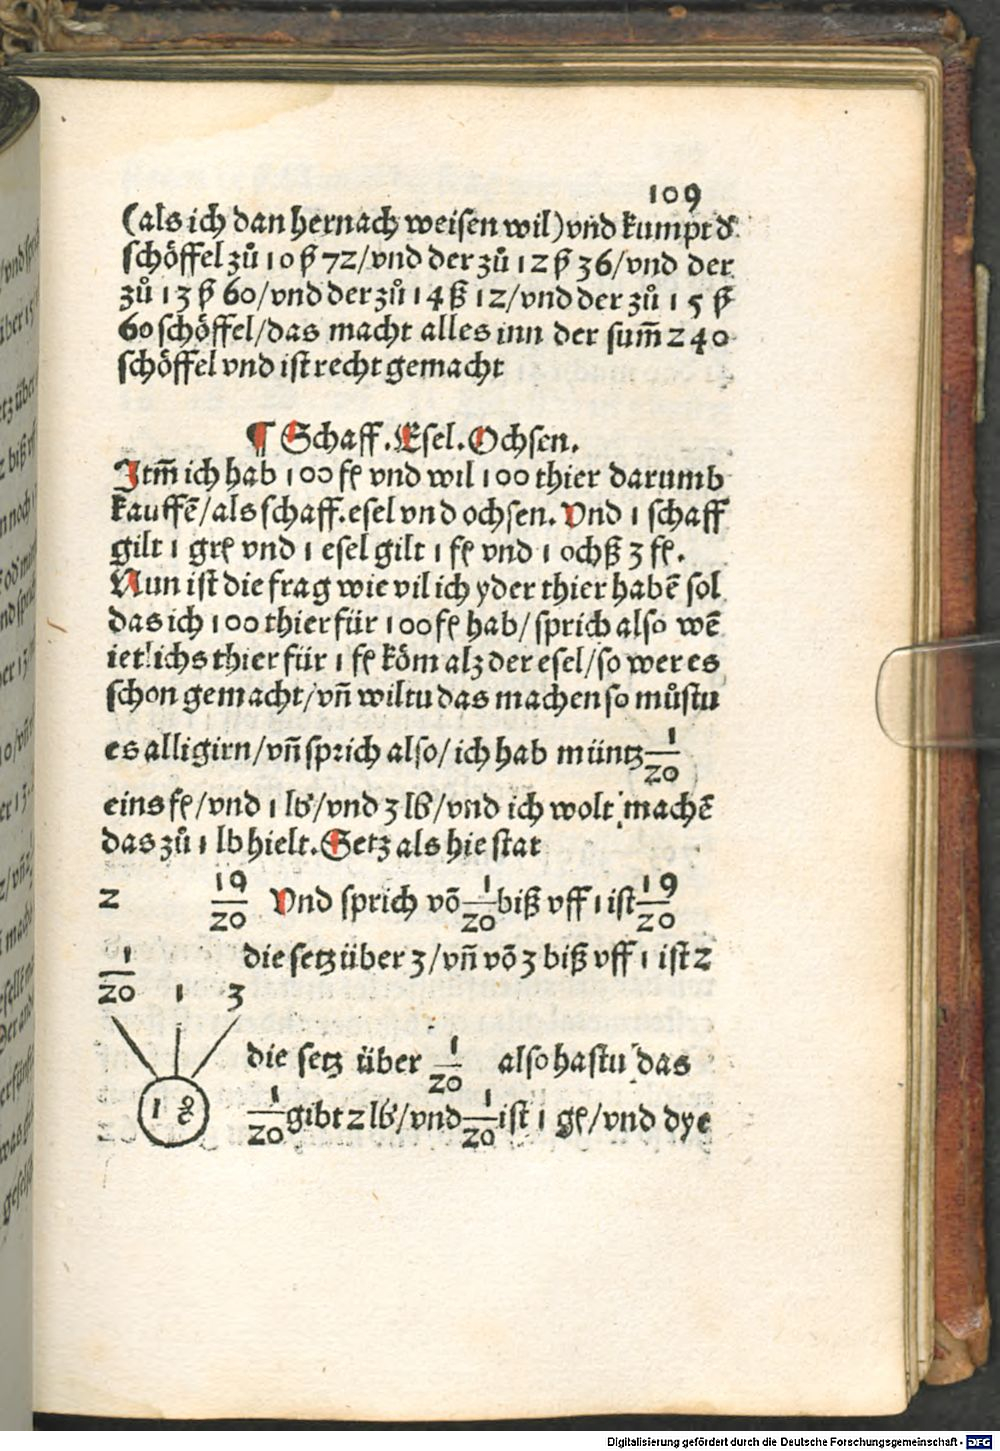 109
(als ich dan hernach weisen wil)vnd kumpt d᷑
schöffel zů 10 ꝑ 72/vnd der zů 12 ꝑ 36/vnd der
zů 13 ꝑ 60/vnd der zů 14 ß 12/vnd der zů 15 ꝑ
60 schöffel/das macht alles inn der sum̄ 240
schöffel vnd ist recht gemacht
¶ Schaff. Esel. Ochsen.
Itm̄ ich hab 100 fl vnd wil 100 thier darumb
kauffē/als schaff. esel vnd ochsen. Vnd 1 schaff
gilt 1 grl vnd 1 esel gilt 1 fl vnd 1 ochß 3 fl.
Nun ist die frag wie vil ich yder thier habē sol
das ich 100 thier für 100 fl hab/sprich also wē
ietlichs thier für 1 fl köm alz der esel/so wer es
schon gemacht/vn̄ wiltu das machen so můstu
es alligirn/vn̄ sprich also/ich hab müntz 1/20
eins fl/vnd 1 lb/vnd 3 lb/vnd ich wolt machē
das zů 1 lb hielt. Setz als hie stat
2 19/20 Vnd sprich vō 1/20 biß vff 1 ist 19/20
die setz über 3/vn̄ vō 3 biß vff 1 ist 2
1/20 1 3
die setz über 1/20 also hastu das
1
1/20 gibt 2 lb/vnd 1/20 ist 1 gl/vnd dye
Digitalisierung gefördert durch die Deutsche Forschungsgemeinschaft - DFG